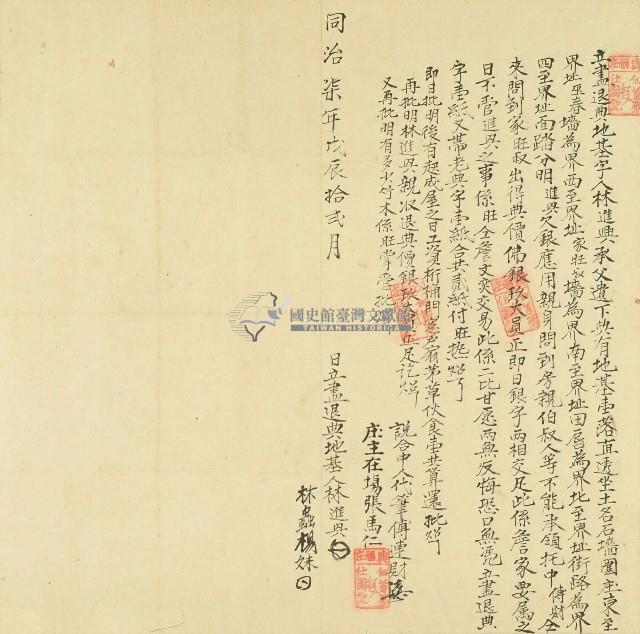 立盡退典地基字人林進興承父遺下典有地基壹落直透坐土名石墻圍庄東至
界址至春墻為界西至界址家旺叔墻為界南至界址田唇為界北至界址街路為界
四至界址面踏分明進興欠銀應用親身問到房親伯叔人等不能承領托中傅財仝
來問到家旺叔出得典價佛銀玖大員正即日銀字兩相交足此係詹家要屬之
日不管進興之事係旺仝詹文奕交易此係二比甘愿兩無反悔恐口無憑立盡退典
字壹紙又帶老典字壹紙合共貳紙付旺執炤
即日批明後有起成屋之日工資桁桷門窓戶扇茅草伙食壹共算還批炤
再批明林進興親收退典價銀玖大員正足訖炤
又再批明有多少竹木係旺掌管批
說合中人代筆傅連財
庄主在場張馬仁
同治柒年戊辰拾弍月 日立盡退典地基人林進興
林 楊妹
國史館臺灣文獻館
TAIWAN HISTORICA